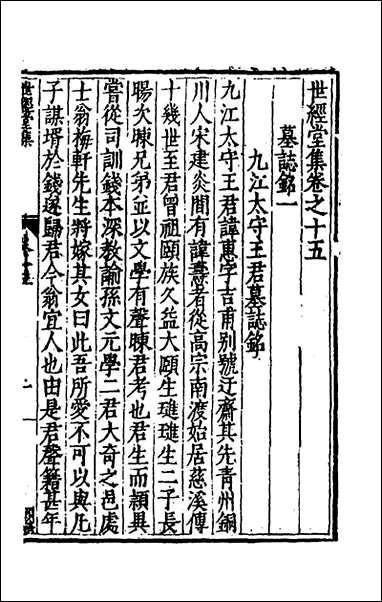 世經堂集卷之十五
墓誌銘一
九江太守王君墓誌銘
九江太守王君諱惠字吉甫别號迂齋其先青州銅
川人宋建炎間有諱壽者從高宗南渡始居慈溪傳
十幾世至君曾祖頤族久益大頤生璡璡生二子長
暘次暕兄弟並以文學有聲暕君考也君生而穎異
嘗從司訓錢本深教諭孫文元學二君大奇之邑處
士翁梅軒先生將嫁其女曰此吾所愛不可以與凡
子謀壻於錢遂歸君今翁宜人也由是君聲籍甚年
世經堂集
卷十五
一